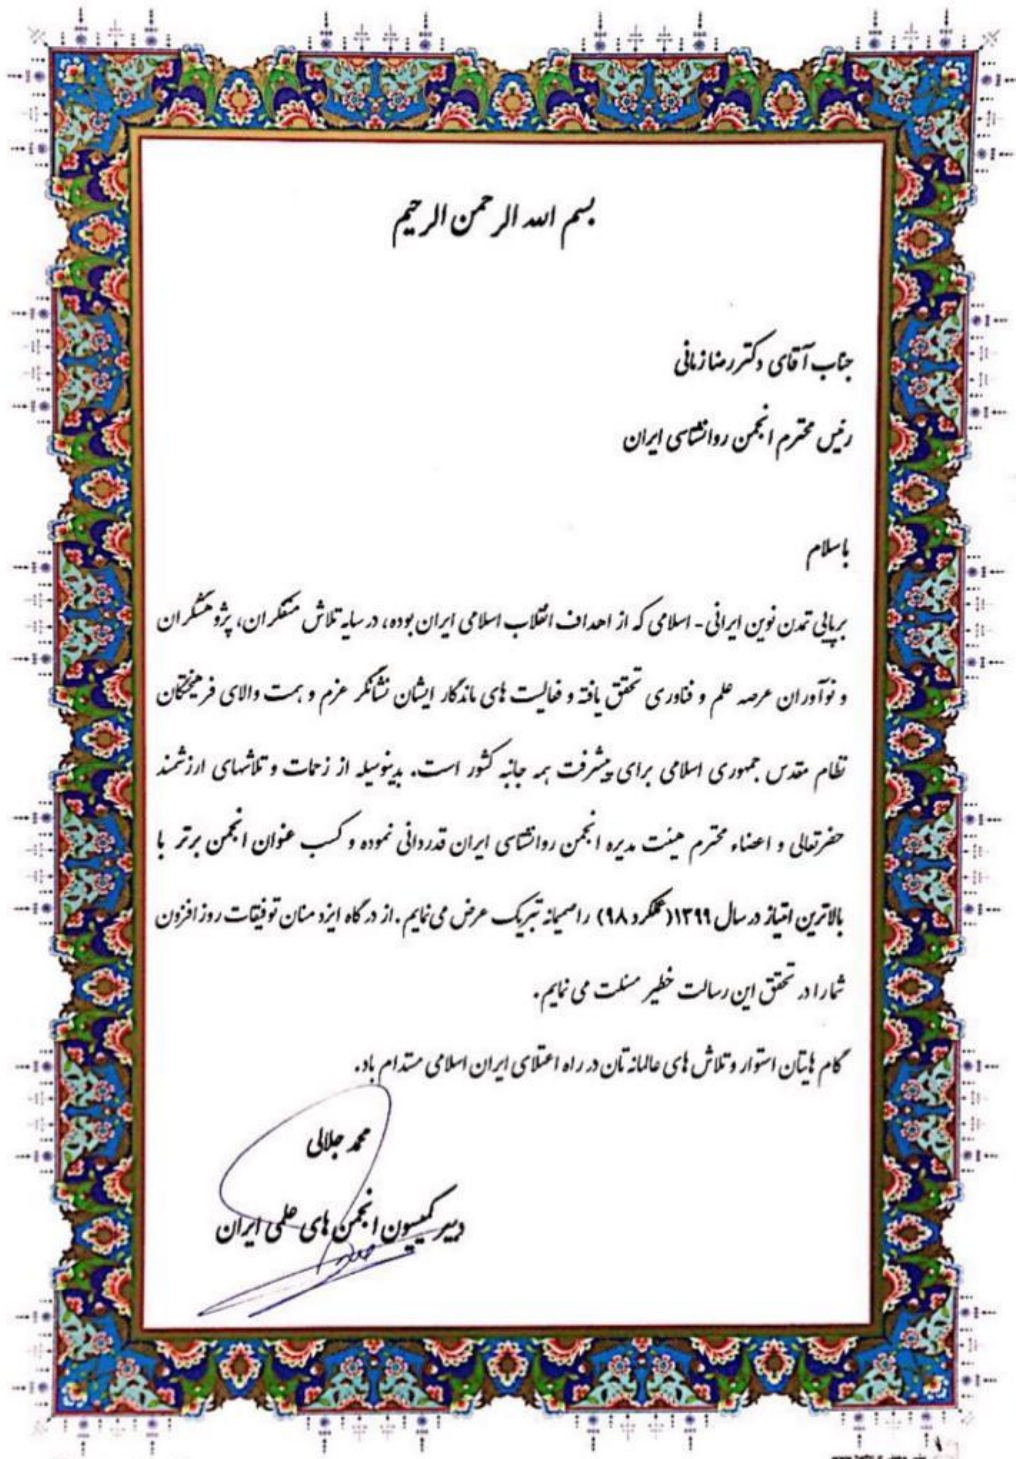 بسم الله الرحمن الرحیم
جناب آقای دکتر رضا زمانی
رئیس محترم انجمن روانشناسی ایران
باسلام
برپایی تمدن نوین ایرانی - اسلامی که از اهداف انقلاب اسلامی ایران بوده، در سایه تلاش متفکران، پژوهشگران
و نوآوران عرصه علم و فناوری تحقق یافته و فعالیت های ماندگار ایشان نشانگر عزم و همت والای فرهیختگان
نظام مقدس جمهوری اسلامی برای پیشرفت همه جانبه کشور است. بدینوسیله از زحمات و تلاشهای ارزشمند
حضرتعالی و اعضاء محترم هیئت مدیره انجمن روانشناسی ایران قدردانی نموده و کسب عنوان انجمن برتر با
بالاترین امتیاز در سال ۱۳۹۹ (عملکرد ۹۸) را صمیمانه تبریک عرض می نمایم. از درگاه ایزد منان توفیقات روز افزون
شما را در تحقق این رسالت خطیر مسئلت می نمایم.
گام هایتان استوار و تلاش های عالمانه تان در راه اعتلای ایران اسلامی مستدام باد.
محمد جلالی
دبیر کمیسیون انجمن های علمی ایران